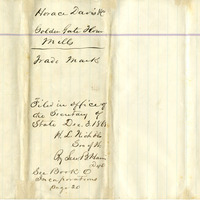 Horace Davis &
Golden Gate Flour
Mills
Trade Mark
Filed in office of
the Secretary of
State Dec. 3.
Sec of State
By
See Book O
Incorporations
Page 20